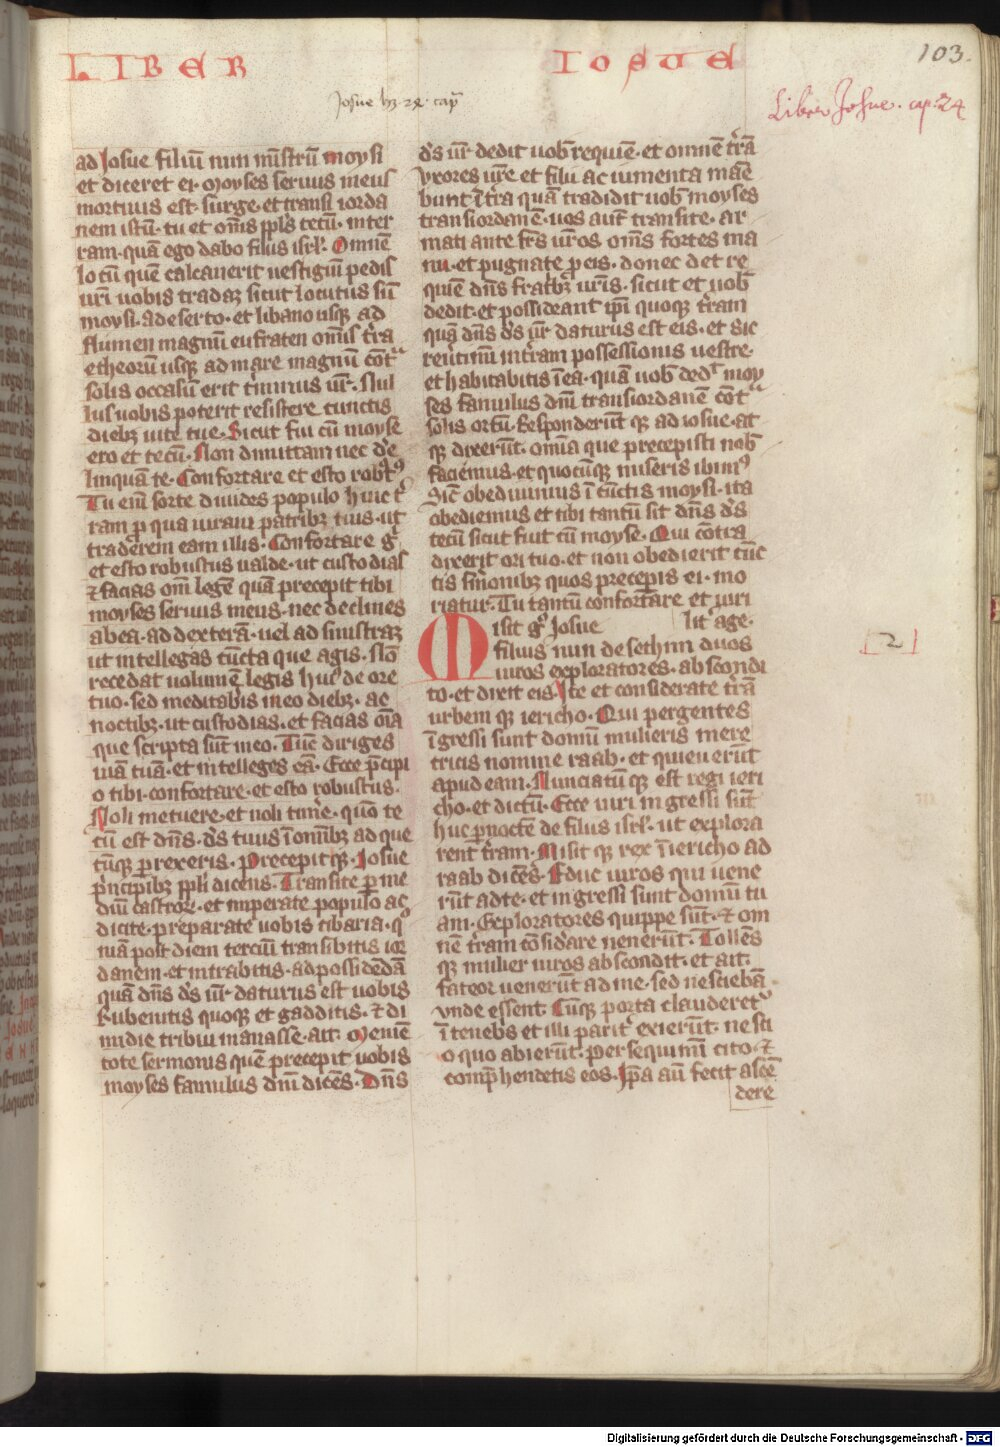 LIBER IOSUE
103.
Josue hz 24 cap
Liber Josue. cap. 24
ad Josue filiū nun mīstrū moysi
et diceret ei. Moyses seruus meus
mortuus est. surge et transi iorda
nem istū. tu et om̄is ppl̄s tecū. in ter
ram quā ego dabo filiis isrl̄. Omnē
locū quē calcauerit uestigiū pedis
uri uobis tradaz sicut locutus sū
moysi. a deserto et libano usqz ad
flumen magnū eufraten om̄is t̄ra
etheorū usqz ad mare magnū cōt̄ᵃ
solis occasū erit t̄minus ur̄. Nul
lus uobis poterit resistere cunctis
diebz uite tue. Sicut fui cū moyse
ero et tecū. Non dimittam nec de
linquā te. Confortare et esto robt̄⁹
Tu eni sorte diuides populo huic t̄
ram p qua iuraui patribz tuis. ut
traderem eam illis. Confortare gͥ
et esto robustus ualde. ut custodias
⁊ facias om̄ legē quā precepit tibi
moyses seruus meus. nec declines
ab ea. ad dexterā. uel ad sinistraz
ut intellegas cūcta que agis. Nō
recedat uolumē legis huiꝰ de ore
tuo. sed meditab̄is in eo diebz. ac
noctibz. ut custodias. et facias oīa
que scripta sūt in eo. Tūc diriges
uiā tuā. et intelleges eā. Ecce p̄cipi
o tibi. confortare. et esto robustus.
Noli metuere. et noli timͥe. quō te
cū est dn̄s. d̄s tuus ī omībz ad que
cūqz prexeris. Precepitqz Josue
p̄ncipibz ppl̄i dicens. Transite p me
diū castroꝝ. et imperate populo ac
dicite. preparate uobis cibaria. qͦ
niā post diem terciū transibitis ior
danem. et intrabitis. ad possidēdā
quā dn̄s d̄s ur̄ daturus est uobis
Rubenitis quoqz et gadditis. ⁊ di
midie tribui manasse. ait. Memē
tote sermonis quē precepit uobis
moyses famulus dn̄i dicēs. Dn̄s
d̄s ur̄ dedit uob̄ requiē. et omnē t̄rā
Vxores ur̄e et filii ac iumenta manē
bunt ī t̄ra quā tradidit uob̄ moyses
trans iordanē. uos aut̄ transite. ar
mati ante fr̄s ur̄os om̄s fortes ma
nu. et pugnate p eis. donec det re
quiē dn̄s fratbz ur̄is. sicut et uob̄
dedit. et possideant ip̄i quoqz t̄ram
quā dn̄s d̄s ur̄ daturus est eis. et sic
reūtim̄i in t̄ram possessionis uestre.
et habitabitis ī ea. quā uob̄ dedᵗ moy
ses famulus dn̄i trans iordanē cōt̄ᵃ
solis ortū. Responderūt qz ad iosue. at
qz dixerūt. omīa que precepisti nob̄
faciemus. et quocūqz miseris ibimꝰ
Sic̄ obediuimus ī cūctis moysi. ita
obediemus et tibi tantū sit dn̄s d̄s
tecū sicut fuit cū moyse. Qui cōtra
dixerit ori tuo. et non obedierit cūc
tis sīmonibz quos precep̄is ei. mo
riatur. Tu tantū confortare et uiri
lit̄ age.
Misit gͥ Josue
filius nun de sethim duos
uiros exploratores. abscondi
to. et dixit eis. Ite et considerate t̄rā
urbem qz iericho. Qui pergentes
īgressi sunt domū mulieris mere
tricis nomine raab. et quieuerūt
apud eam. Nunciatū qz est regi ieri
cho. et dictū. Ecce uiri ingressi sūt
huc p noctē de filiis isrl̄. ut explora
rent t̄ram. Misit qz rex ī iericho ad
raab dicēs. Educ uiros qui uene
rūt ad te. et ingressi sunt domū tu
am. Exploratores quippe sūt. ⁊ om
nē t̄ram cōsid̄are uenerūt. Tollēs
qz mulier uiros abscondit. et ait.
fateor uenerūt ad me. sed nesciebā
vnde essent. Cūqz porta clauderetᵘ
ī teneb̄s et illi parit̄ exierūt. nesci
o quo abierūt. persequimī cito. ⁊
comp̄hendetis eos. Ip̄a aū fecit ascē
dere
[2]
Digitalisierung gefördert durch die Deutsche Forschungsgemeinschaft - DFG